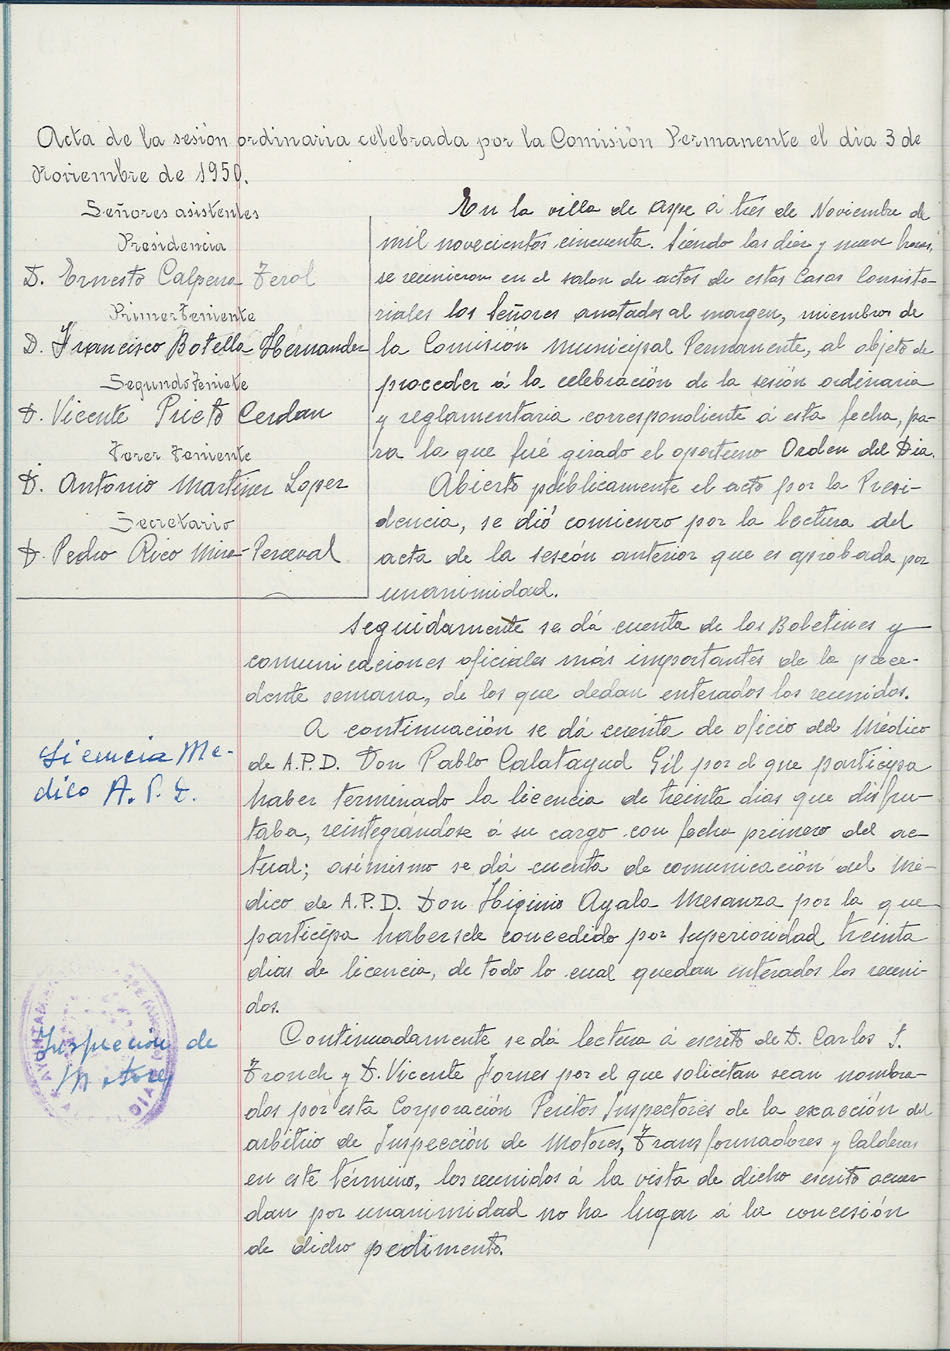 Acta de la sesión ordinaria celebrada por la Comisión Permanente el dia 3 de
Noviembre de 1950.
Señores asistentes
Presidencia
D. Ernesto Calpena Ferol
Primer Teniente
D. Francisco Botella Hernandez
Segundo Teniete
D. Vicente Prieto Cerdan
Tercer Teniente
D. Antonio Martinez Lopez
Secretario
D. Pedro Rico Mira-Perceval
En la villa de Aspe á tres de Noviembre de
mil novecientos cincuenta. Siendo las diez y nueve horas,
se reunieron en el salon de actos de estas Casas Consisto-
riales los Señores anotados al margen, miembros de
la Comisión Municipal Permanente, al objeto de
proceder á la celebración de la sesión ordinaria
y reglamentaria correspondiente á esta fecha, pa-
ra la que fué girado el oportuno Orden del Dia.
Abierto públicamente el acto por la Presi-
dencia, se dió comienzo por la lectura del
acta de la sesión anterior que es aprobada por
unanimidad.
Seguidamente se dá cuenta de los Boletines y
comunicaciones oficiales más importantes de la prece-
dente semana, de los que dedan enterados los reunidos.
A continuación se dá cuenta de oficio del Médico
de A.P.D. Don Pablo Calatayud Gil por el que participa
haber terminado la licencia de treinta dias que disfru-
taba, reintegrándose á su cargo con fecha primero del ac-
tual; asímismo se dá cuenta de comunicación del Mé-
dico de A.P.D. Don Higinio Ayala Mesanza por la que
participa habersele concedido por Superioridad treinta
dias de licencia, de todo lo cual quedan enterados los reuni-
dos.
Continuadamente se dá lectura á escrito de D. Carlos S.
Tronch y D. Vicente Fornes por el que solicitan sean nombra-
dos por esta Corporación Peritos Inspectores de la exacción del
arbitrio de Inspección de Motores, Transformadores y Calderas
en este término, los reunidos á la vista de dicho escrito acuer-
dan por unanimidad no ha lugar á la concesión
de dicho pedimento.
Licencia Me-
dico A.P.D.
Inspeccion de
Motores